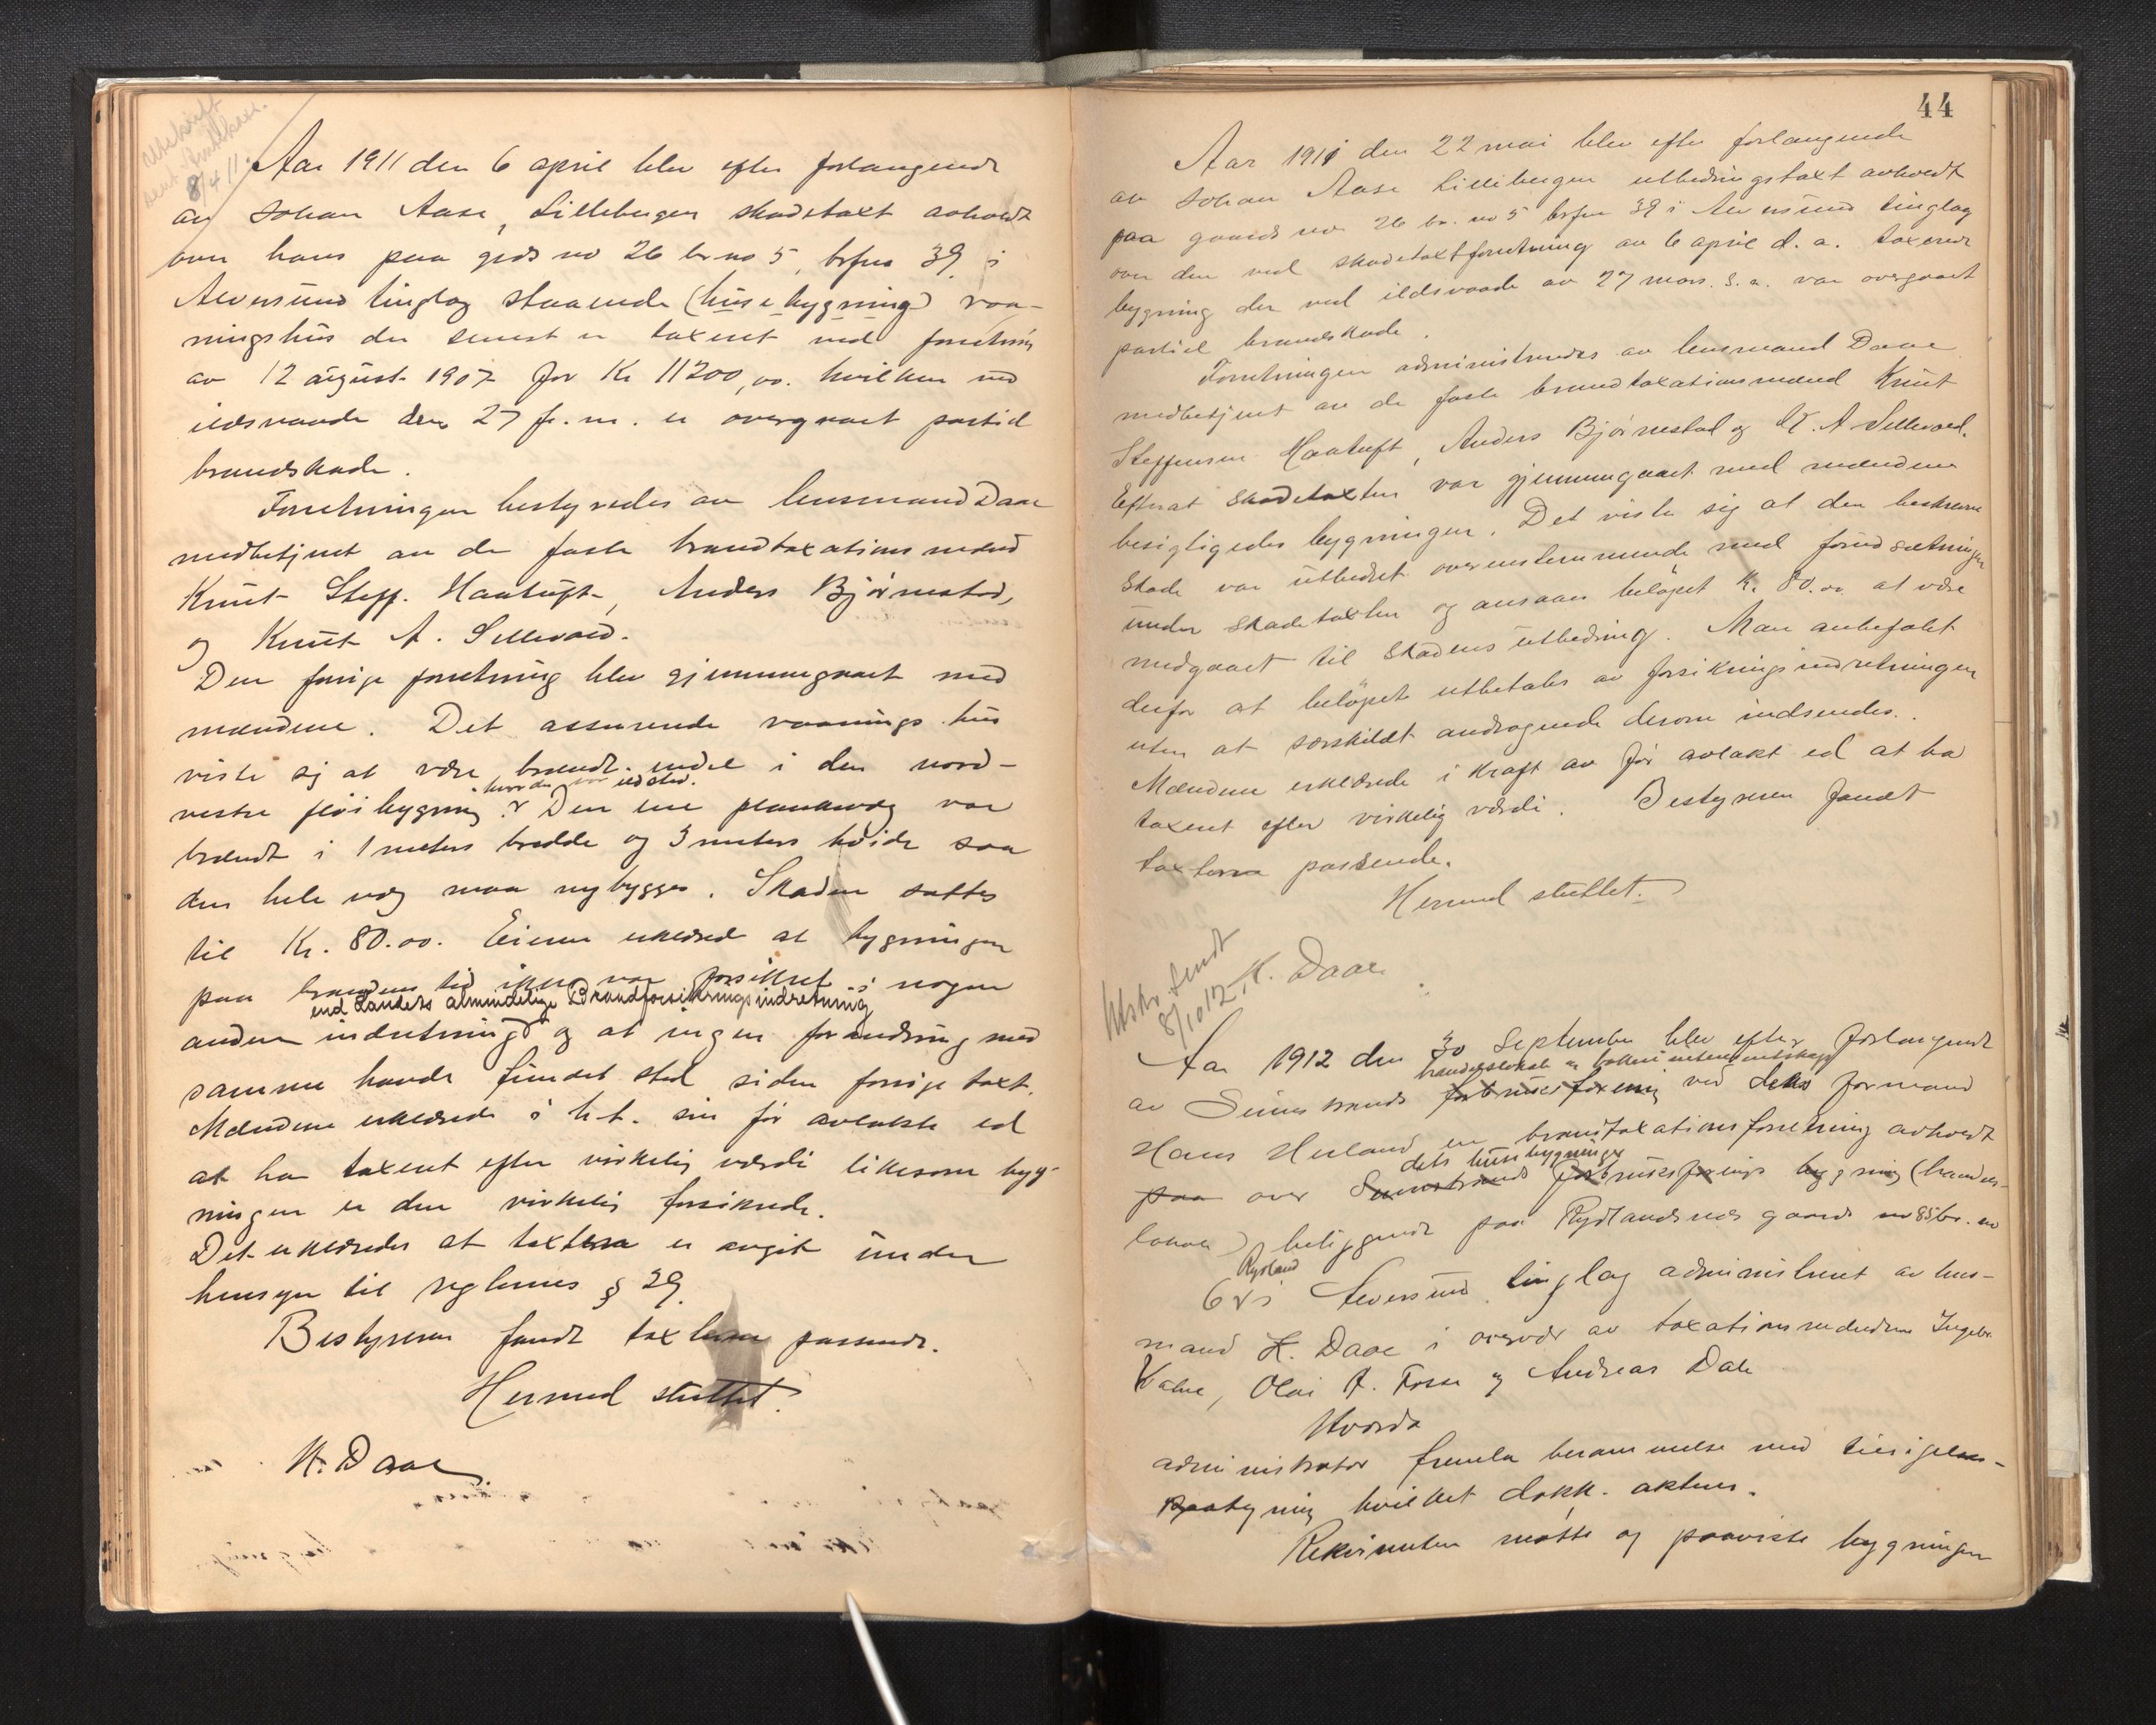 8/4 11.
Aar 1911 den 6 april blev efter forlangende
av Johan Aase, Lillebergen skadetaxt avholdt
over hans paa grds no 26 br no 5, brfns 39 i
Alversund tinglag staaende (husebygning) vaa-
ningshus der senest er taxert ved forretning
av 12 august 1907 for Kr 11200,00. hvilken ved
ildsvaade den 27 f.m. er overgaaet partiel
brandskade.
Forretningen bestyredes av lensmand Daae
medbetjent av de faste brandtaxationsmænd
Knut Steff. Haatuft, Anders Bjørnestad,
og Knut A. Sellevold.
Den forrige forretning blev gjennemgaaet med
mændene. Det assurerede vaanings hus
viste sig at være brændt endel i den nord-
hvor der var ildsted.
vestre fløibygning. Den ene plankevæg var
brændt i 1 meters bredde og 3 meters høide saa
den hele væg maa nybygges. Skaden sattes
til Kr. 80.00. Eieren erklærede at bygningen
paa brandens tid ikke var forsikret i nogen
end Landets almindelige Brandforsikringsindretning
anden indretning og at ingen forandring med
samme havde fundet sted siden forrige taxt.
Mændene erklærede i h.t. sin før avlakte ed
at ha taxert efter virkelig værdi likesom byg-
ningen er den virkelig forsikrede.
Det erklæredes at taxterne er avgit under
hensyn til reglernes § 29.
Bestyreren fandt taxterne passende.
Hermed sluttet.
K. Daae
44
Aar 1911 den 22 mai blev efter forlangende
av Johan Aase Lillebergen utbedringstaxt avholdt
paa gaards no 26 br. no 5 brfns 39 i Alversund tinglag
over den ved skadetaxtforretning av 6 april d. a. taxerede
bygning der ved ildsvaade av 27 mars. s. a. var overgaaet
partiel brandskade.
Forretningen administreredes av lensmand Daae
medbetjent av de faste brandtaxationsmænd Knut
Steffensen Haatuft, Anders Bjørnestad og K. A. Sellevold.
Efterat skadetaxten var gjennemgaaet med mændene
besigtigedes bygningen. Det viste sig at den beskrevne
skade var utbedret overensstemmende med forudsætningen
under skadetaxten og ansaaes beløpet Kr. 80.00 at være
medgaaet til skadens utbedring. Man anbefalet
derfor at beløpet utbetales av forsikringsindretningen
uten at særskildt andragende derom indsendes.
Mændene erklærede i kraft av før avlakt ed at ha
taxert efter virkelig værdi. Bestyreren fandt
taxterne passende.
Hermed sluttet.
K. Daae
Utskr. sendt
8/10 12
Aar 1912 den 30 September blev efter forlangende
handelslokale
av Seimstrands forbruksforening ved dens formand
Hans Herland en brandtaxationsforretning avholdt
dets husebygninger
paa over Seimstrands forbruksforenings bygning (handels-
lokale) beliggende paa Rydlandsnes gaards no 85 br. no
Rydland
6 i Alversund tinglag administrert av lens-
mand K. Daae i overvær av taxationsmændene Ingebr.
Kalve, Olai A. Fosse og Andreas Dale
Hvorda
administrator fremla berammelse med tilsigelses-
paategning hvilket dokk. aktenes.
Rekvirenten møtte og paaviste bygningen